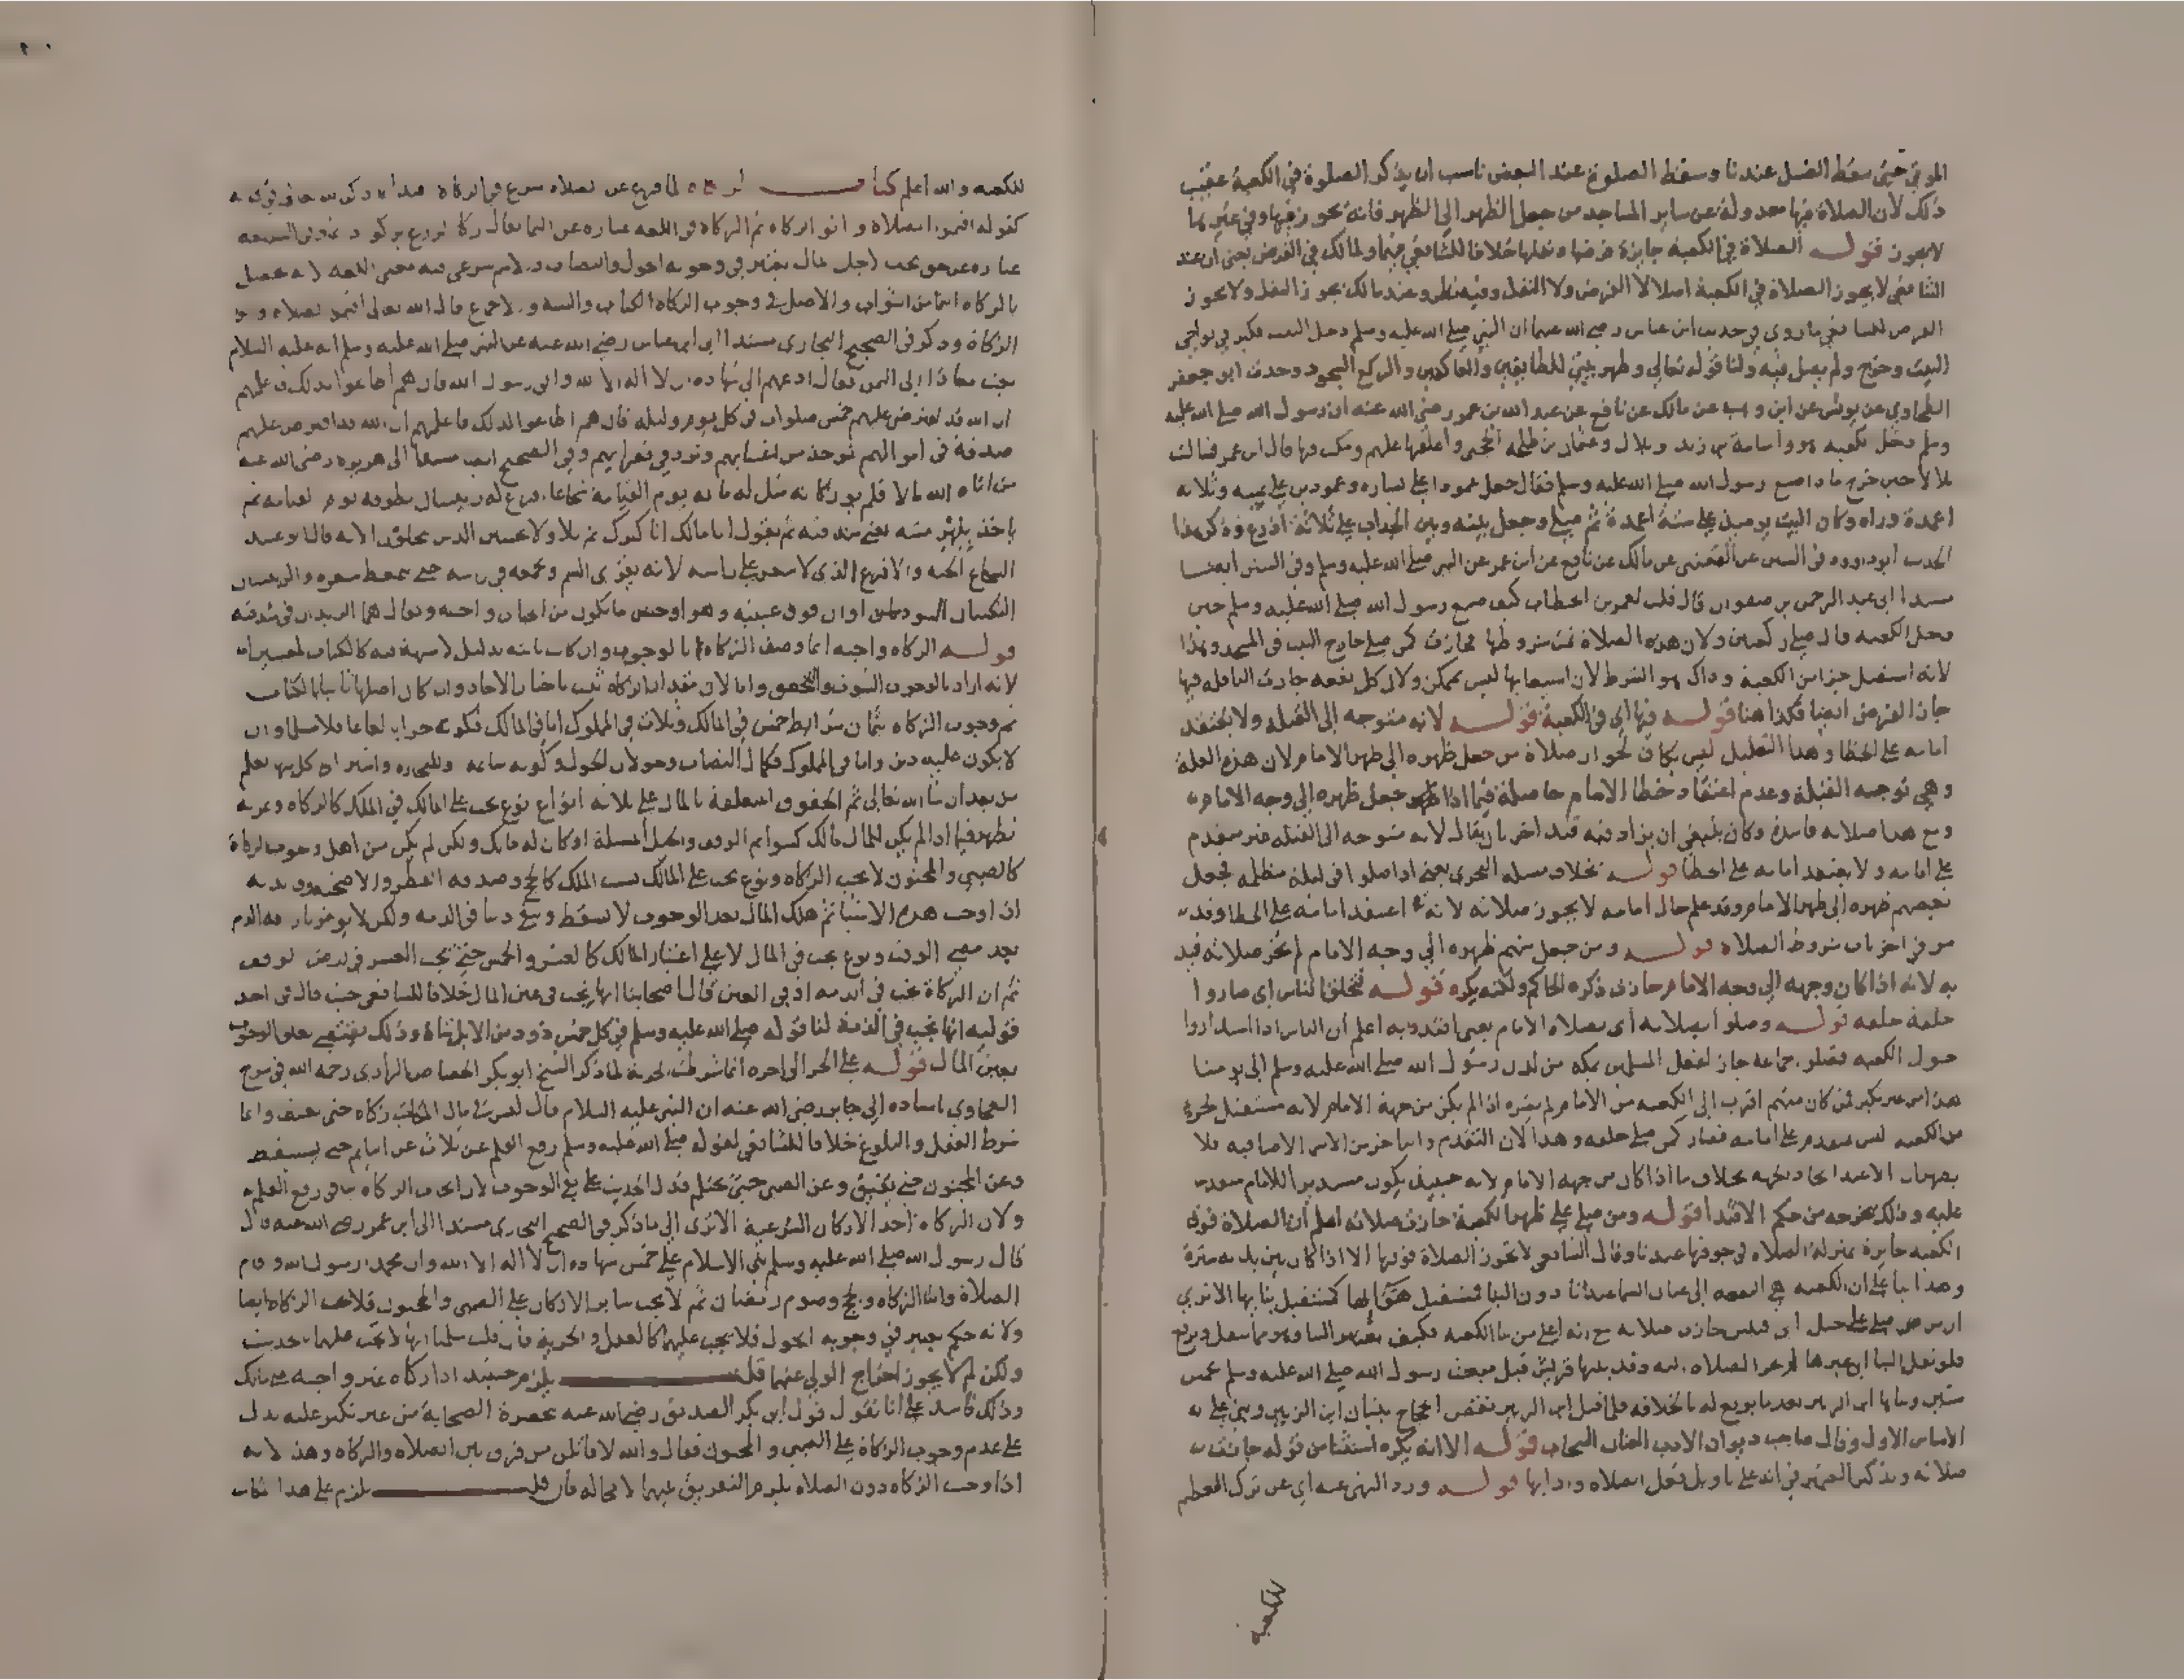 الموتى حتى سقط الغسل عندنا وسقط الصلوة عند البعض ناسب ان يذكر الصلوة في الكعبة عقيب
ذلك لان الصلاة فيها معدولة عن ساير المساجد من جعل الظهر الى الظهر فانه يجوز فيها وفي غيرها
لا يجوز قوله الصلاة في الكعبة جايزة فرضها ونفلها خلافا للشافعي فيهما ولمالك في الفرض يعني ان عند
الشافعي لا يجوز الصلاة في الكعبة اصلا لا الفرض ولا النفل وفيه نظر وعند مالك يجوز النفل ولا يجوز
الفرض للشافعي ما روي في حديث ابن عباس رضي الله عنهما ان النبي صلى الله عليه وسلم دخل البيت فكبر في نواحي
البيت وخرج ولم يصل فيه ولنا قوله تعالى وطهر بيتي للطايفين والعاكفين والركع السجود وحدث ابو جعفر
الطحاوي عن يونس عن ابن وهب عن مالك عن نافع عن عبد الله بن عمر رضي الله عنه ان رسول الله صلى الله عليه
وسلم دخل الكعبة هو واسامة بن زيد وبلال وعثمان بن طلحة الحجبي واغلقها عليهم ومكث فيها قال ابن عمر فسالت
بلالا حين خرج ماذا صنع رسول الله صلى الله عليه وسلم فقال جعل عمودا على يساره وعمودين على يمينه وثلاثة
اعمدة وراه وكان البيت يوميذ على ستة اعمدة ثم صلى وجعل بينه وبين الجدار على ثلاثة اذرع وذكر هذا
الحديث ابو داوود في السنن عن القعنبي عن مالك عن نافع عن ابن عمر عن النبي صلى الله عليه وسلم وفي السنن ايضا
مسندا الى عبد الرحمن بن صفوان قال قلت لعمر بن الخطاب كيف صنع رسول الله صلى الله عليه وسلم حين
دخل الكعبة قال صلى ركعتين ولان هذه الصلاة تمت شروطها فجازت كمن صلى خارج البيت في المسجد وهذا
لانه استقبل جزا من الكعبة وذاك هو الشرط لان استيعابها ليس بممكن ولان كل بقعة جازت النافلة فيها
جاز الفرض ايضا فكذا هنا قوله فيها اي في الكعبة قوله لانه متوجه الى القبلة ولا يعتقد
امامه على الخطا وهذا التعليل ليس بكاف لجواز صلاة من جعل ظهره الى ظهر الامام لان هذه العلة
وهي توجه القبلة وعدم اعتقاد خطا الامام حاصلة فيما اذا جعل ظهره الى وجه الامام
ومع هذا صلاته فاسدة وكان ينبغي ان يزاد فيه قيد اخر بان يقال لانه متوجه الى القبلة غير متقدم
على امامه ولا يعتقد امامه على الخطا قوله بخلاف مسلة التحري يعني اذا صلوا في ليلة مظلمة فجعل
بعضهم ظهره الى ظهر الامام وقد علم حال امامه لا يجوز صلاته لانه اعتقد امامه على الخطا وقد
مر في اخر باب شروط الصلاة قوله ومن جعل منهم ظهره الى وجه الامام لم تجز صلاته قيد
به لانه اذا كان وجهه الى وجه الامام جازت ذكره الحاكم ولكنه يكره قوله فتحلق الناس اي صاروا
حلقة حلقة قوله وصلوا بصلاته اي بصلاة الامام يعني اقتدوا به اعلم ان الناس اذا استداروا
حول الكعبة فصلوا جماعة جاز لفعل المسلمين بمكة من لدن رسول الله صلى الله عليه وسلم الى يومنا
هذا من غير نكير فمن كان منهم اقرب الى الكعبة من الامام لم يضره اذا لم يكن من جهة الامام لانه مستقبل لجزء
من الكعبة ليس بمتقدم على امامه فصار كمن صلى خلفه وهذا لان التقدم والتاخر من الاسماء الاضافية فلا
يظهران الا عند اتحاد الجهة بخلاف ما اذا كان من جهة الامام لانه حينيذ يكون مستدبرا للامام متقدما
عليه وذلك يخرجه من حكم الاقتدا قوله ومن صلى على ظهر الكعبة جازت صلاته اعلم ان الصلاة فوق
الكعبة جايزة بمنزلة الصلاه في جوفها عندنا وقال الشافعي لا تجوز الصلاة فوقها الا اذا كان بين يديه سترة
وهذا بنا على ان الكعبة هي البقعة الى عنان السما عندنا دون البنا فمستقبل هوائها كمستقبل بنائها الا ترى
ان من صلى على جبل ابي قبيس جازت صلاته مع انه اعلى من بنا الكعبة فكيف يعتبر البنا وهو مما ينقل ويرفع
فلو نقل البنا الى غيرها لم تجز الصلاة اليه وقد بناها قريش قبل مبعث رسول الله صلى الله عليه وسلم بخمس
سنين وبناها ابن الزبير بعد ما بويع له بالخلافة فلما قتل ابن الزبير نقض الحجاج بنيان ابن الزبير وبنى على
الاساس الاول وقال صاحب ديوان الادب العنان السحاب قوله الا انه يكره استثنا من قوله جازت
صلاته وتذكير الضمير في انه على تاويل فعل الصلاه وادائها قوله ورد النهي عنه اي عن ترك التعظيم
للكعبة
للكعبه والله اعلم كتاب الزكاه لما فرغ عن الصلاة شرع في الزكاة
كقوله اقيموا الصلاة واتوا الزكاه ثم الزكاة في اللغة عبارة عن النما يقال زكا الزرع يزكو وفي الشريعة
عبارة عن حق يجب لاجل المال يعتبر في وجوبه الحول والنصاب
والاصل في وجوب الزكاة الكتاب والسنة والاجماع قال الله تعالى اقيموا الصلاة واتوا
الزكاة وذكر في الصحيح البخاري مسندا الى ابن عباس رضي الله عنه عن النبي صلى الله عليه وسلم انه عليه السلام
بعث معاذا الى اليمن فقال ادعهم الى شهادة ان لا اله الا الله واني رسول الله فان هم اطاعوا لذلك فاعلمهم
ان الله قد افترض عليهم خمس صلوات في كل يوم وليلة فان هم اطاعوا لذلك فاعلمهم ان الله قد افترض عليهم
صدقة في اموالهم توخذ من اغنيائهم وترد في فقرائهم وفي الصحيح ايضا مسندا الى ابي هريرة رضي الله عنه
من اتاه الله مالا فلم يود زكاته مثل له ماله يوم القيامة شجاعا اقرع له زبيبتان يطوقه يوم القيامة ثم
ياخذ بلهزمتيه يعني شدقيه ثم يقول انا مالك انا كنزك ثم تلا ولا يحسبن الذين يبخلون الاية قال ابو عبيد
الشجاع الحية والاقرع الذي لا شعر على راسه لانه يقري السم ويجمعه في راسه حتى يتمعط شعره والزبيبتان
النكتتان السوداوان فوق عينيه وهو اوحش ما يكون من الحيات واخبثه ويقال هما الزبدتان في شدقيه
قوله الزكاه واجبه انما وصف الزكاة بالوجوب وان كانت ثابتة بدليل لا شبهة فيه كالكتاب
لانه اراد بالوجوب الثبوت والتحقق واما لان مقدار الزكاة ثبت باخبار الاحاد وان كان اصلها ثابتا بالكتاب
ثم وجوب الزكاه بثمان شرايط خمس في المالك وثلاث في المملوك اما في المالك فكونه حرا بالغا عاقلا مسلما وان
لا يكون عليه دين واما في المملوك فكمال النصاب وحولان الحول وكونه سايمة او للتجارة
بعد ان شا الله تعالى ثم الحقوق المتعلقة بالمال على ثلاثة انواع نوع يجب على المالك في الملك كالزكاة
تظهر فيما اذا لم يكن للمال مالك كسوايم الوقف والخيل المسبلة او كان له مالك ولكن لم يكن من اهل وجوب الزكاة
كالصبي والمجنون لا يجب الزكاه ونوع يجب على المالك بسبب الملك كالحج وصدقة الفطر والاضحية
اذا وجب هذه الاشيا ثم هلك المال بعد الوجوب لا يسقط ويبقى دينا في الذمة
بعد مضي الوقت ونوع يجب في المال لا على اعتبار المالك كالعشر والخمس حتى يجب العشر في ارض الوقف
ثم ان الزكاة تجب في الذمة او في العين قال اصحابنا انها تجب في عين المال خلافا للشافعي حيث قال في احد
قوليه انها تجب في الذمة لنا قوله صلى الله عليه وسلم في كل خمس ذود من الابل شاة وذلك يقتضي تعلق الوجوب
بعين المال قوله على الحر الى اخره انما شرطت الحرية لما ذكر الشيخ ابو بكر الجصاص الرازي رحمه الله في شرح
الطحاوي اسناده الى جابر رضي الله عنه ان النبي عليه السلام قال ليس في مال المكاتب زكاه حتى يعتق وانما
شرط العقل والبلوغ خلافا للشافعي لقوله صلى الله عليه وسلم رفع القلم عن ثلاث عن النايم حتى يستيقظ
وعن المجنون حتى يفيق وعن الصبي حتى يحتلم فدل الحديث على نفي الوجوب لان ايجاب الزكاه ينافي رفع القلم
ولان الزكاه احد الاركان الشرعية الا ترى الى ما ذكر في الصحيح البخاري مسندا الى ابن عمر رضي الله عنه قال
قال رسول الله صلى الله عليه وسلم بني الاسلام على خمس شهادة ان لا اله الا الله وان محمدا رسول الله واقام
الصلاة وايتا الزكاه والحج وصوم رمضان ثم لا يجب ساير الاركان على الصبي والمجنون فلا تجب الزكاه ايضا
ولانه حكم يعتبر في وجوبه الحول فلا يجب عليهما كالعقل والجزية فان قلت سلمنا انها لا تجب عليهما
ولكن لم لا يجوز اخراج الولي عنهما قلت يلزم حينيذ اداء زكاه غير واجبه
وذلك فاسد على انا نقول قول ابي بكر الصديق رضي الله عنه بحضرة الصحابة من غير نكير عليه يدل
على عدم وجوب الزكاة على الصبي والمجنون فقال والله لاقاتلن من فرق بين الصلاه والزكاه وهذا لانه
اذا وجب الزكاة دون الصلاه يلزم التفريق بينهما لا محاله فان قلت يلزم على هذا